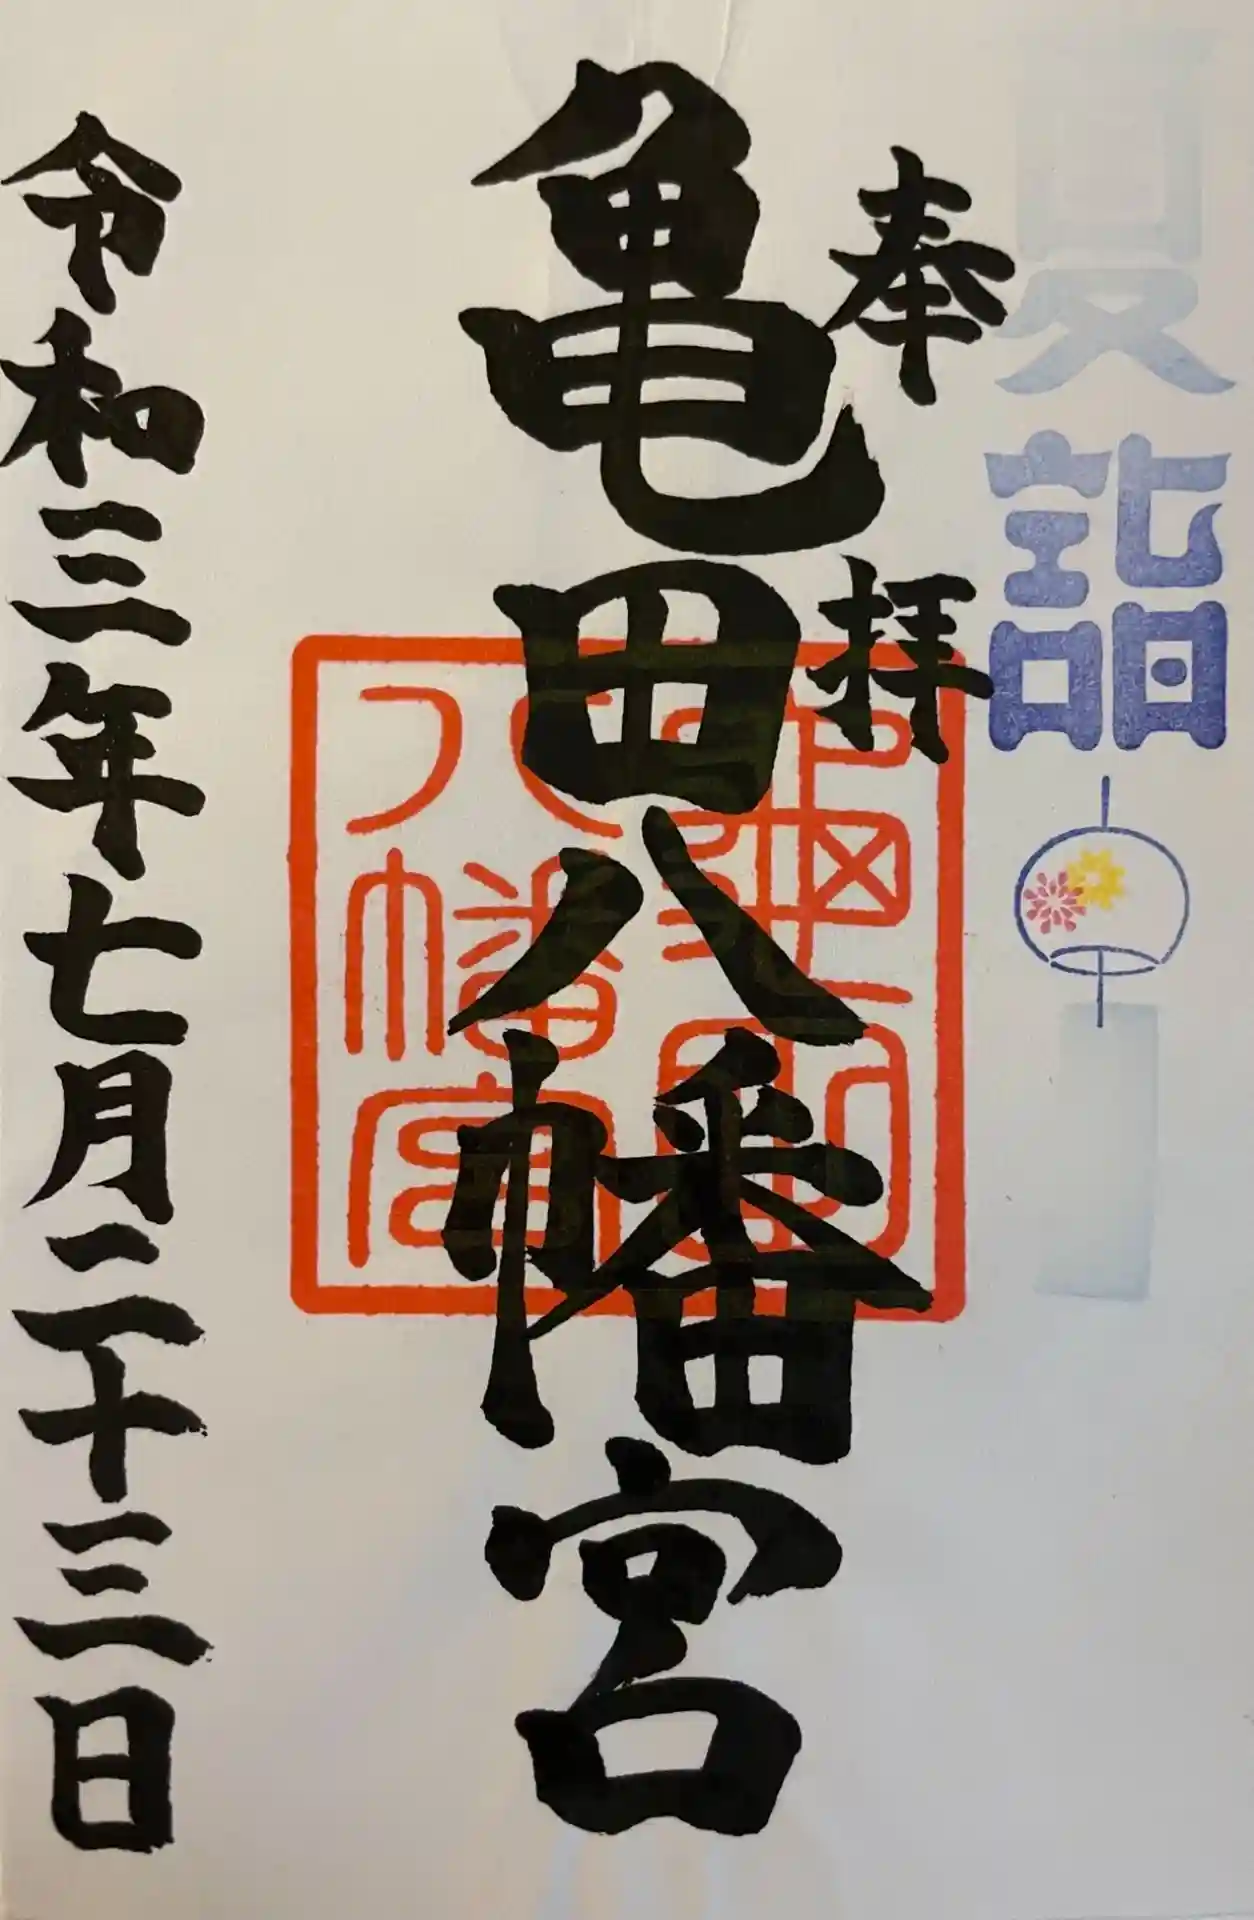 夏詣
奉拝
亀田八幡宮
亀田
八幡宮
令和三年七月二十三日